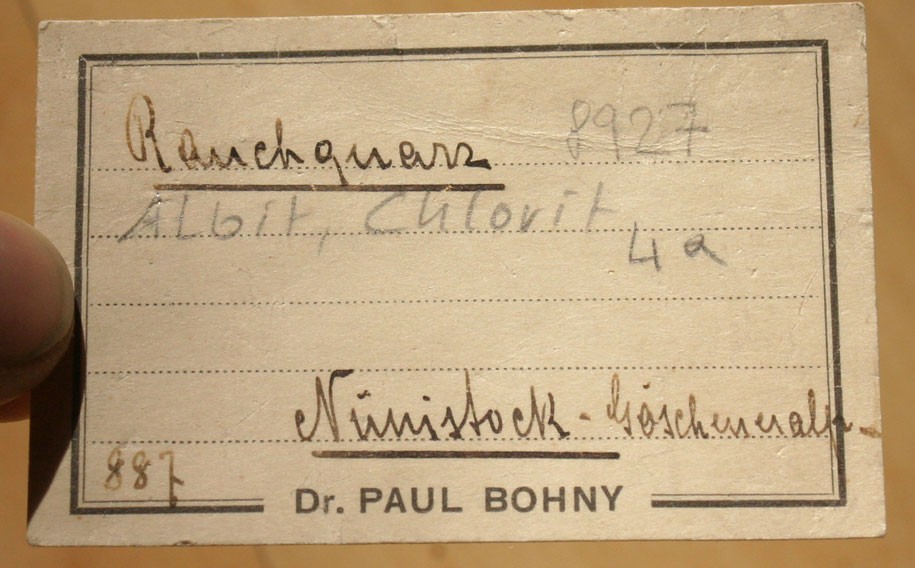 Rauchquarz 8927
Albit, Chlorit
4a
Nünistock - Göscheneralp -
887
Dr. PAUL BOHNY